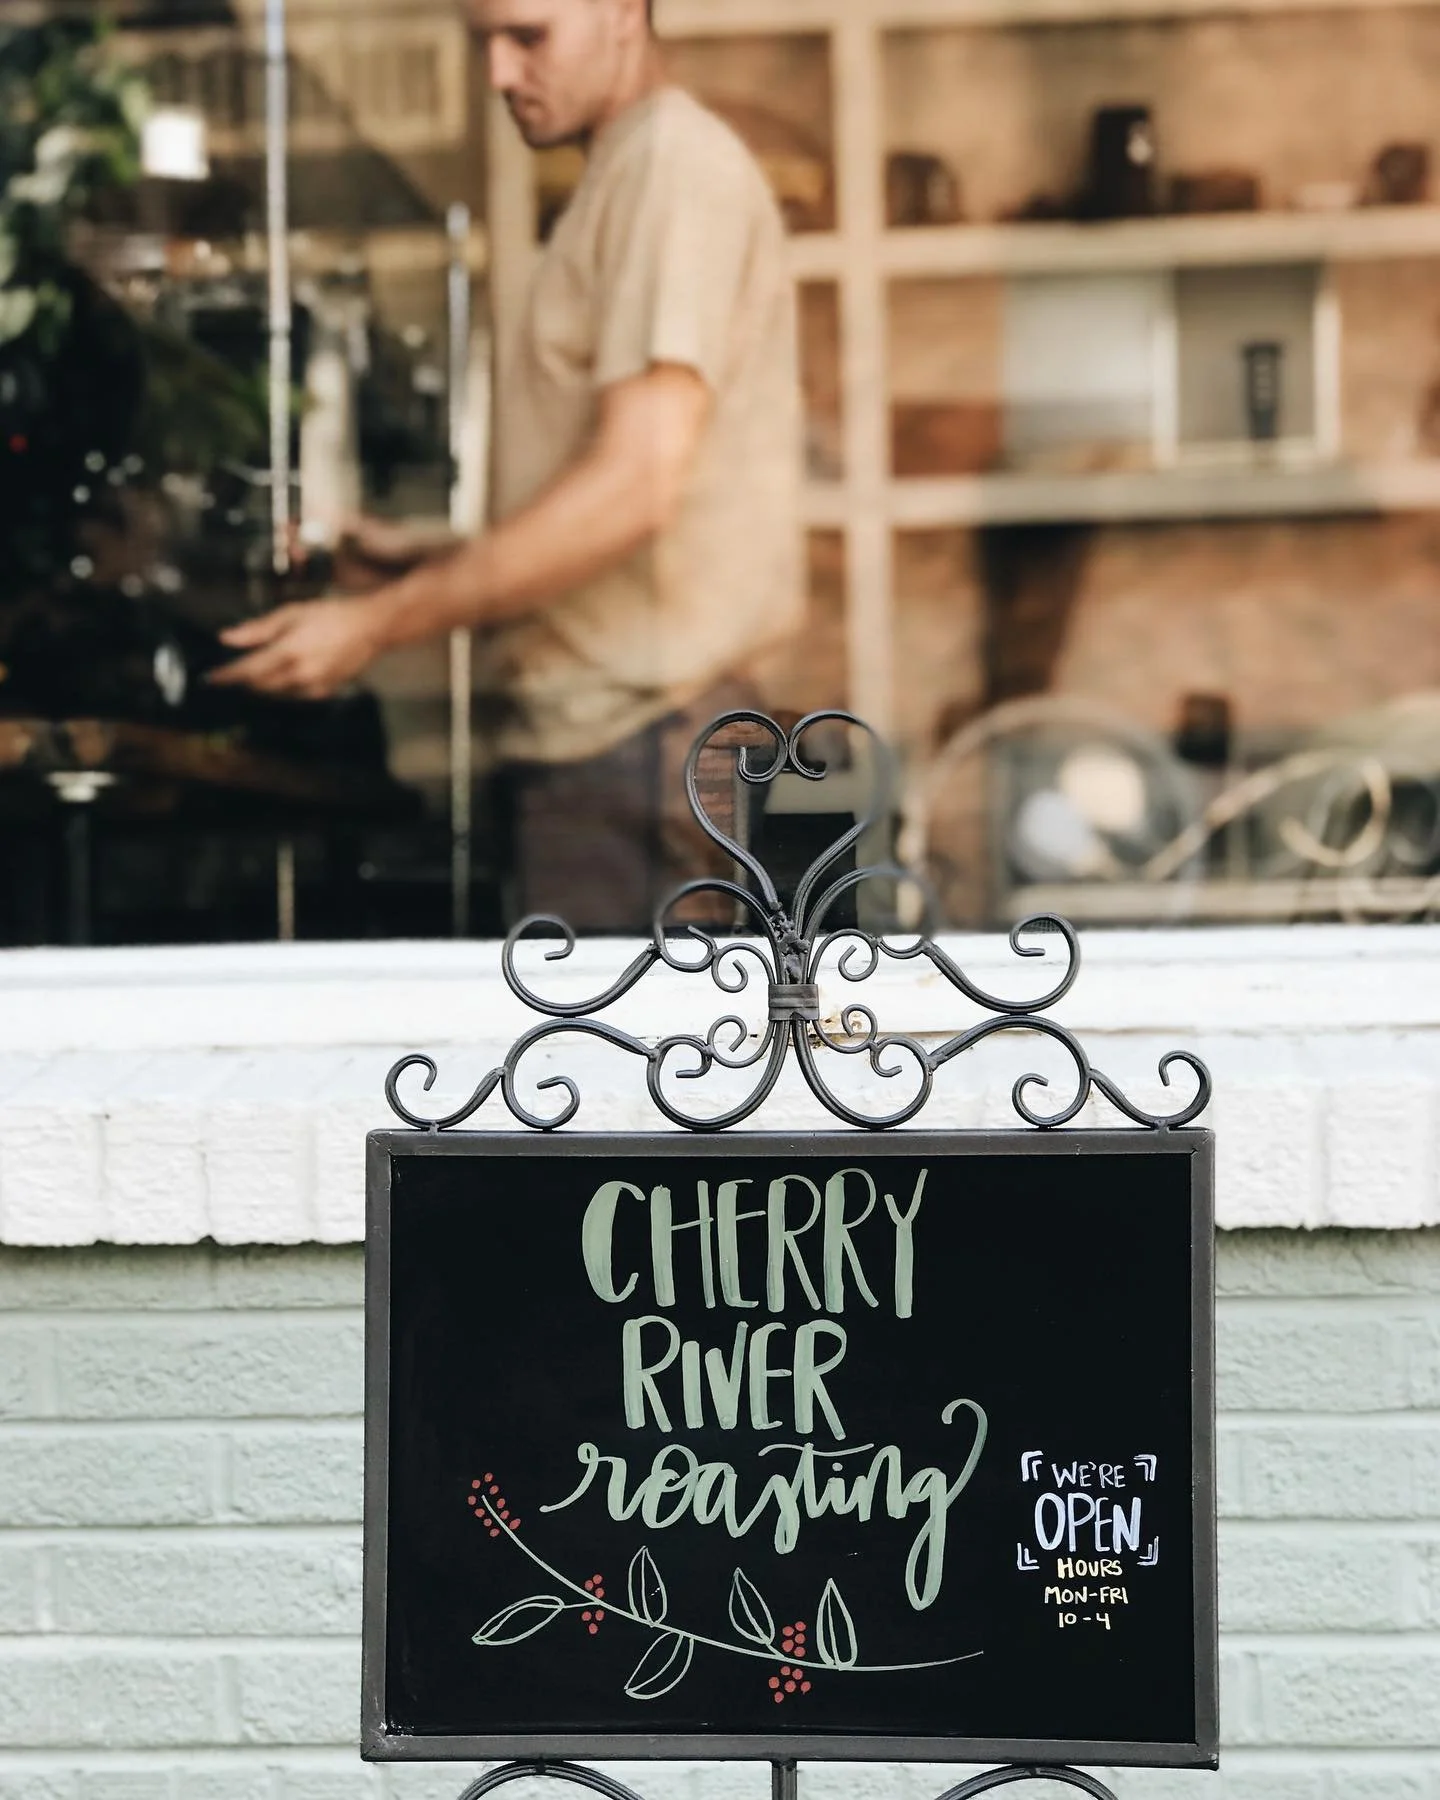 CHERRY
RIVER
roasting
WE'RE
OPEN
HOURS
MON-FRI
10-4